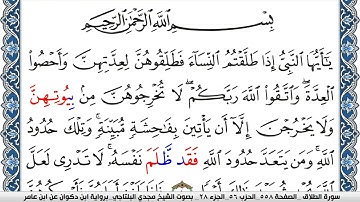 بِسْمِ اللَّهِ الرَّحْمَٰنِ الرَّحِيمِ
يَٰٓأَيُّهَا النَّبِىُّ إِذَا طَلَّقْتُمُ النِّسَآءَ فَطَلِّقُوهُنَّ لِعِدَّتِهِنَّ وَأَحْصُوا
الْعِدَّةَ ۖ وَاتَّقُوا اللَّهَ رَبَّكُمْ ۖ لَا تُخْرِجُوهُنَّ مِنۢ بِيُوتِهِنَّ
وَلَا يَخْرُجْنَ إِلَّآ أَن يَأْتِينَ بِفَٰحِشَةٍ مُّبَيِّنَةٍ ۚ وَتِلْكَ حُدُودُ
اللَّهِ ۚ وَمَن يَتَعَدَّ حُدُودَ اللَّهِ فَقَد ظَّلَمَ نَفْسَهُۥ ۚ لَا تَدْرِى لَعَلَّ
سورة الطلاق _ الصفحة ٥٥٨ _ الحزب ٥٦ _ الجزء ٢٨ _ بصوت الشيخ مجدي البلتاجي _ برواية ابن ذكوان عن ابن عامر